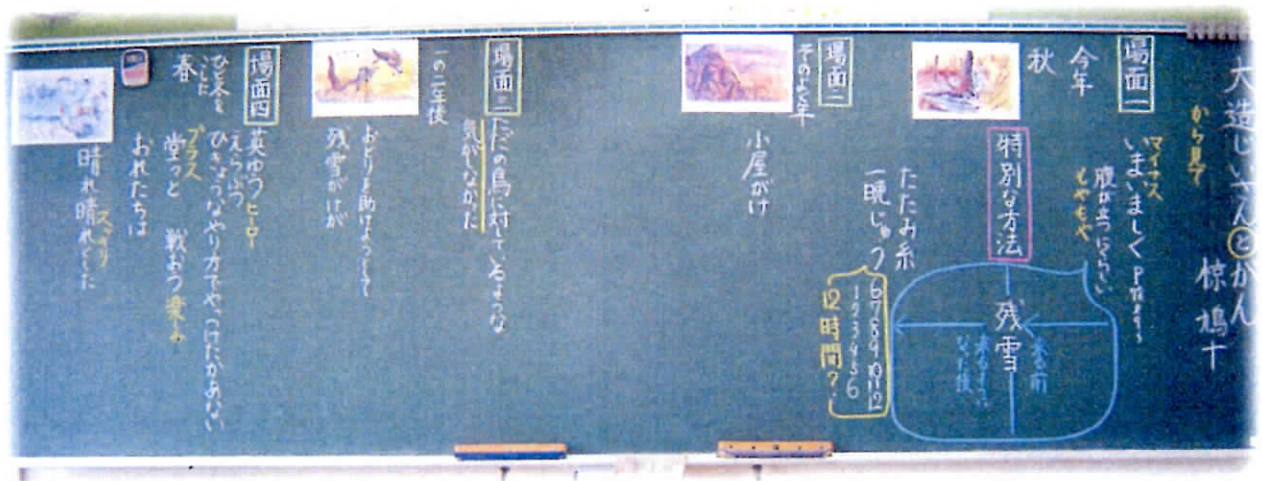 大造じいさんとがん
から見て
椋鳩十
場面一
マイナス
いまいましく
腹が立つ
もやもや
今年
秋
特別な方法
残雪
来る前
たたみ糸
一晩じゅう
6 7 8 9 10 11 12
1 2 3 4 5 6
12時間？
場面二
そのよく年
小屋がけ
場面三
ただの鳥に対しているような
気がしなかった
一の二年後
おとりを助けようとして
残雪がけが
場面四
ひと冬を
こした
春
英ゆう ヒーロー
えらぶつ
ひきょうなやり方でやっつけたかあない
プラス
堂っと 戦おう 楽しみ
おれたちは
晴れ晴れとした
スッキリ